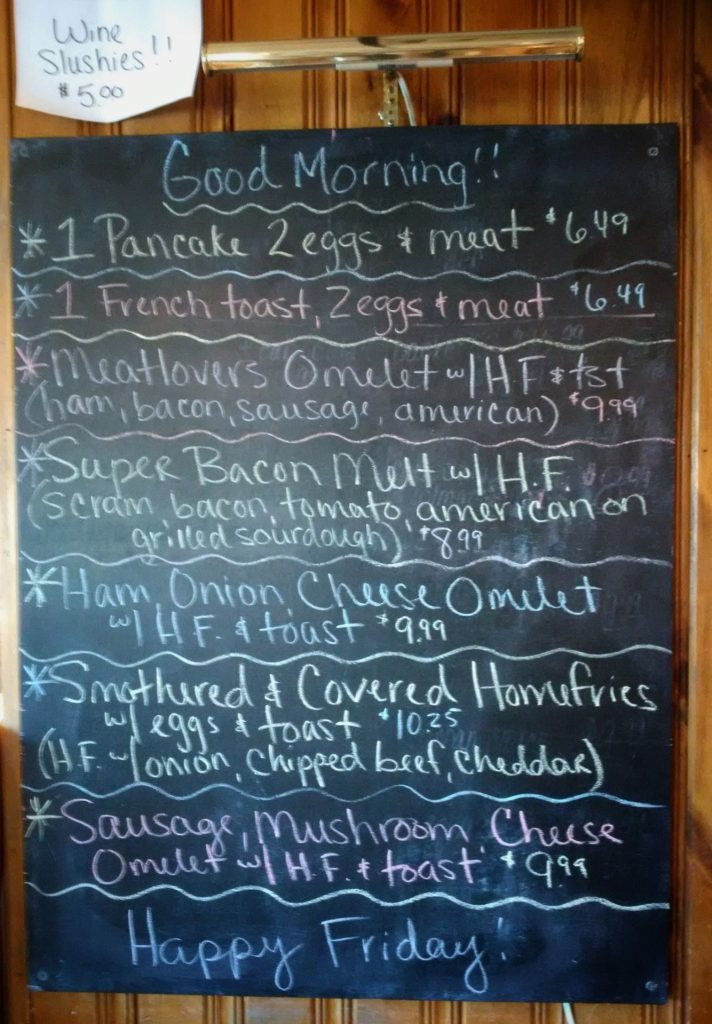 Wine
Slushies!!
$5.00
Good Morning!!
*1 Pancake 2 eggs & meat $6.49
*1 French toast, 2 eggs & meat $6.49
*Meatlovers Omelet w/ H.F & tst
(ham, bacon, sausage, american) $9.99
*Super Bacon Melt w/ H.F.
(scram, bacon, tomato, american on
grilled sourdough) $8.99
*Ham, Onion, Cheese Omelet
w/ H.F. & toast $9.99
*Smothered & Covered Homefries
w/ eggs & toast $10.25
(H.F. w/ onion, chipped beef, cheddar)
*Sausage, Mushroom, Cheese
Omelet w/ H.F. & toast $9.99
Happy Friday!